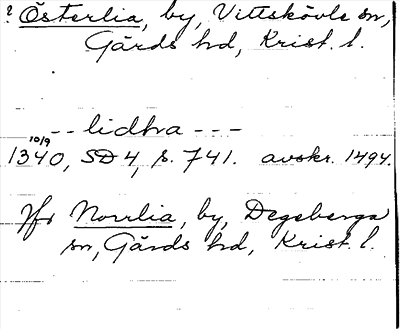 ? Österlia, by, Vittskövle sn,
Gärds hd, Krist. l.
-- lidhra ---
10/9
1340, SD 4, s. 741. avskr. 1494.
Jfr Norrlia, by, Degeberga
sn, Gärds hd, Krist. l.